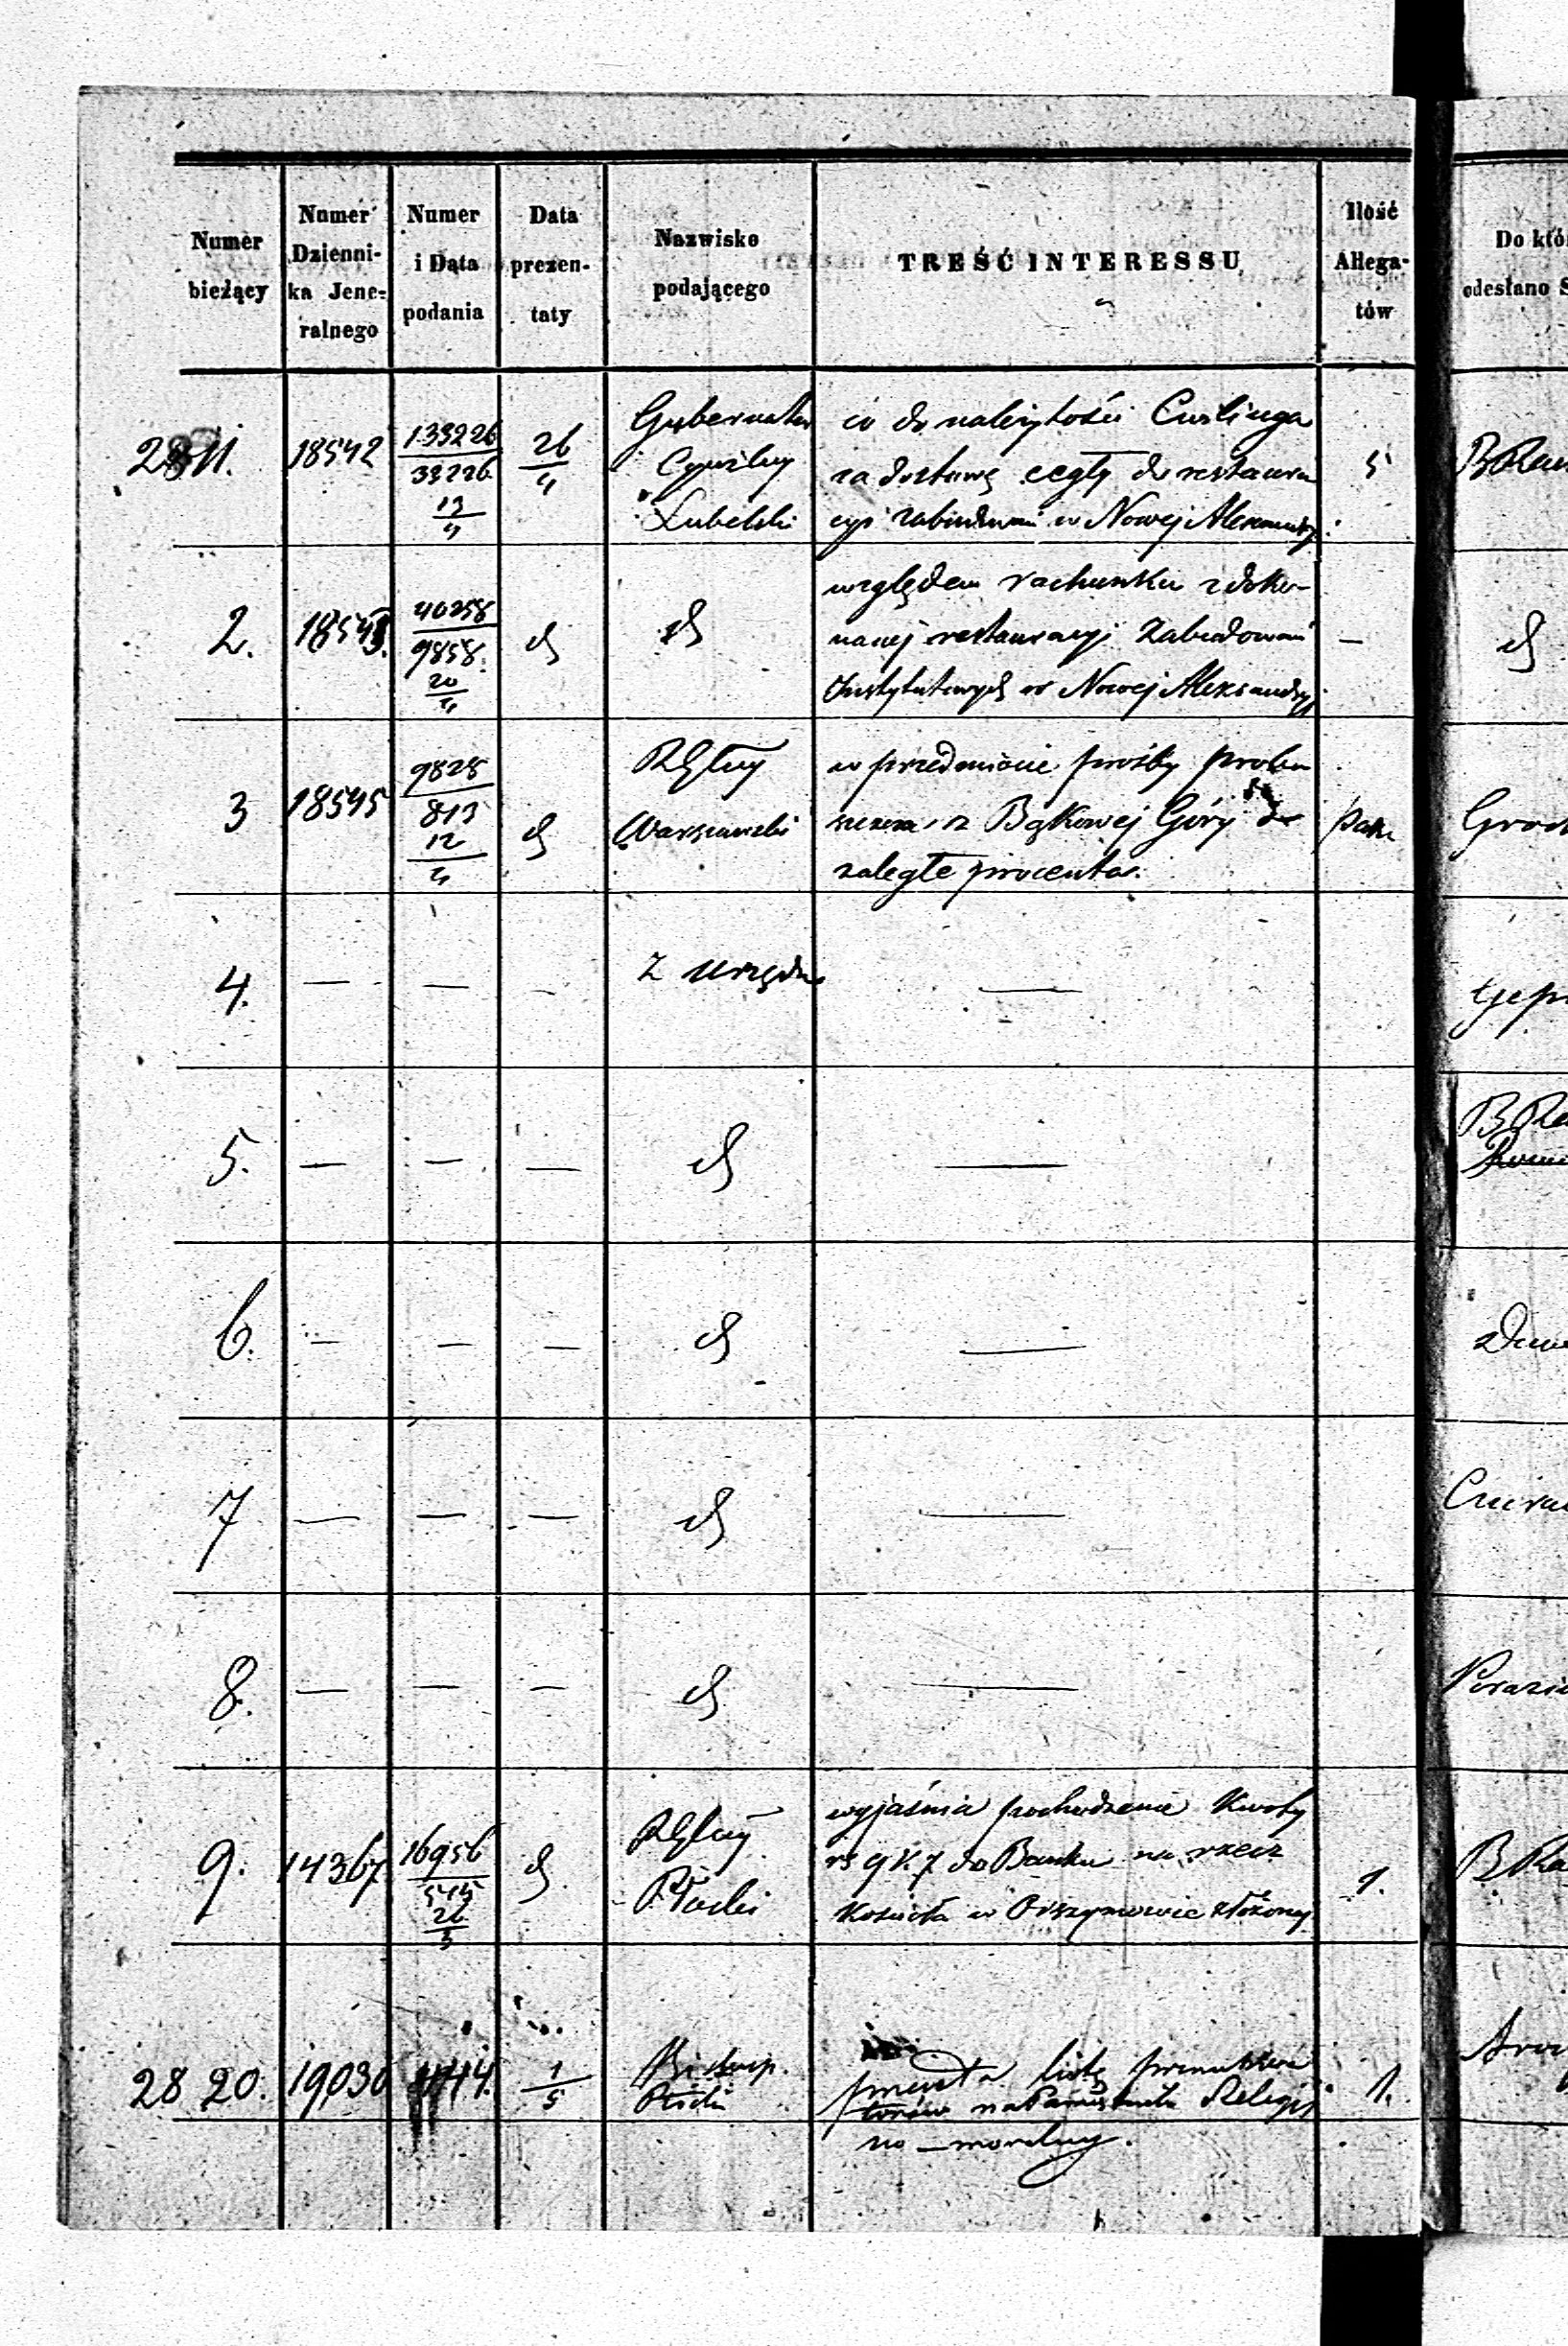 Numer bieżący
Numer Dziennika Jeneralnego
Numer i Data podania
Data prezentaty
Nazwisko podającego
TREŚĆ INTERESSU
Ilość Allegatów
Do któ
odesłano S
28 11.
18542
133226
33226
13
4
26
4
Gubernator
Cywilny
Lubelski
co do należytości Curlinga
za dostawę cegły do restaura
cyi zabudowań w Nowej Alexandry
5
2.
1854
40258
9858
20
4
względem rachunku z doko-
nanej restauracyi Zabudowań
Instytutowych w Nowej Aleksandryi
—
3
18545
9828
813
12
4
Warszawski
w przedmiocie prośby probo
szcza z Bąkowej Góry
zaległe procenta.
4.
—
—
—
Z urzędu
—
5.
—
—
—
—
6.
—
—
—
—
7
—
—
—
—
8.
—
—
—
—
9.
14367
16956
545
26
3
Płocki
wyjaśnia pochodzenie Kwoty
rs 9 k. 7 do Banku na rzecz
Kościoła w złożonej
1.
28 20.
19030
1
5
Biskup
listę prenumera
torów na Pamiętnik Religij
no-moralny.
1.